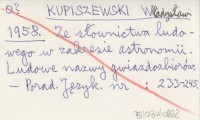 KUPISZEWSKI Władysław
1958. Ze słownictwa ludo-
wego w zakresie astronomii.
Ludowe nazwy gwiazdozbiorów
- Porad. Język. nr : 233-245.